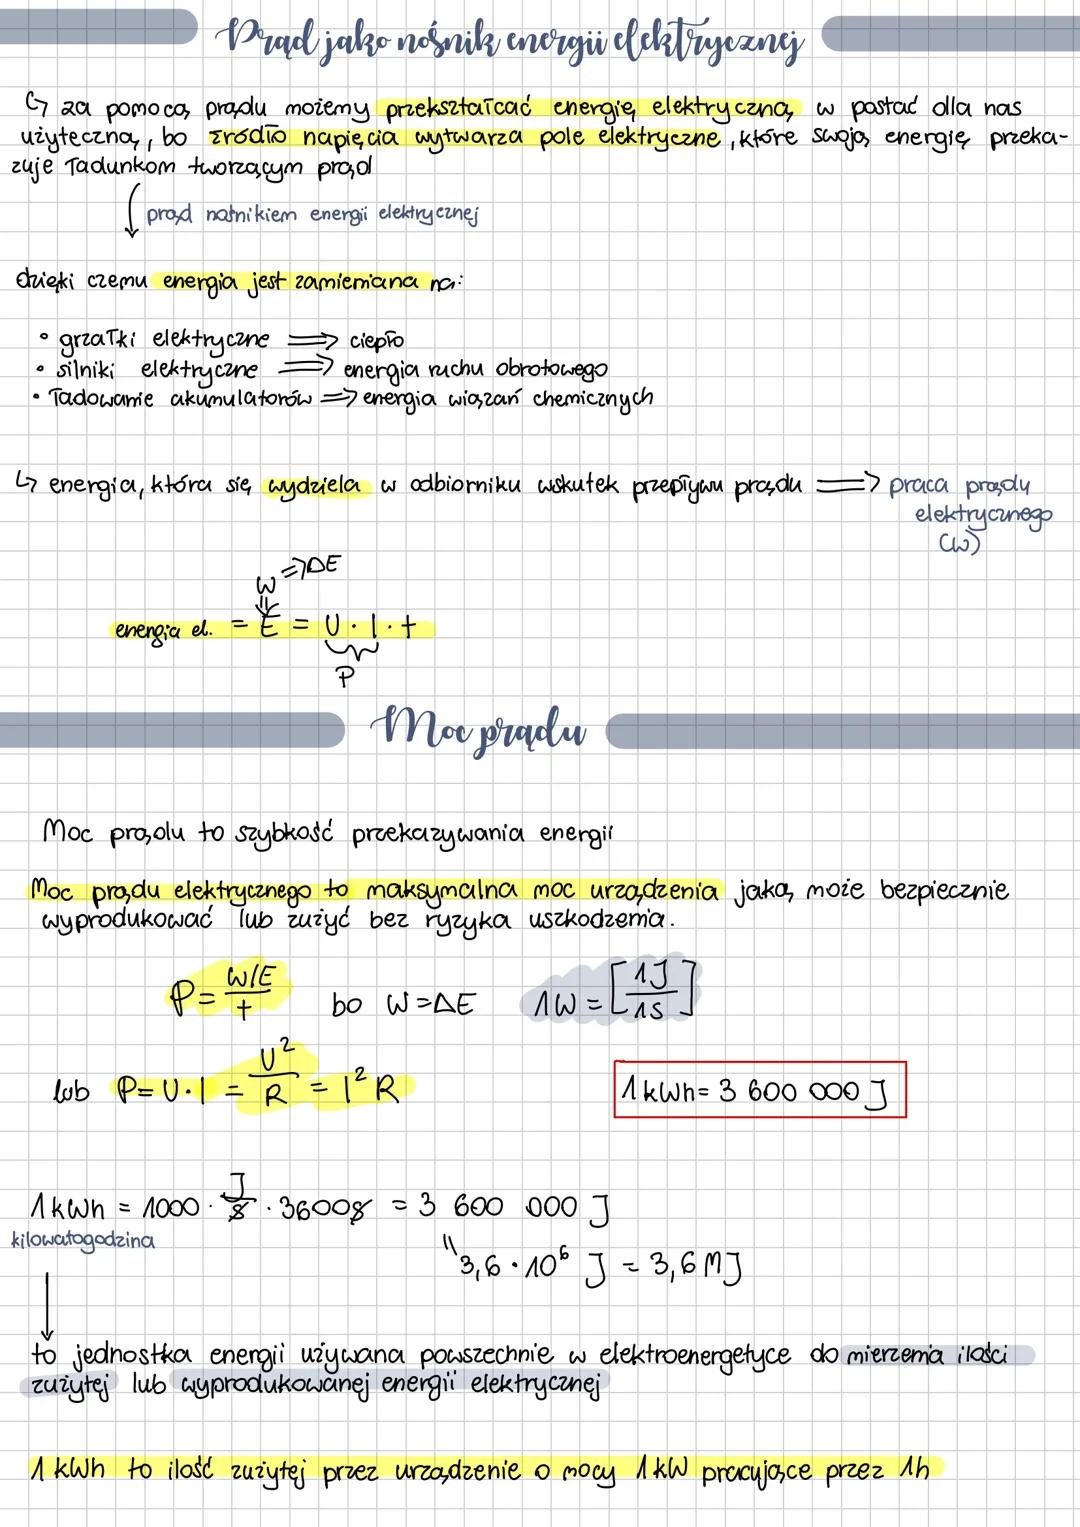 Prąd jako nośnik energii elektrycznej
↳ za pomocą prądu możemy przekształcać energię elektryczną w postać dla nas
użyteczną, bo źródło napięcia wytwarza pole elektryczne, które swoją energię przeka-
zuje ładunkom tworzącym prąd
prąd nośnikiem energii elektrycznej
dzięki czemu energia jest zamieniana na:
• grzałki elektryczne ⟹ ciepło
• silniki elektryczne ⟹ energia ruchu obrotowego
• ładowanie akumulatorów ⟹ energia wiązań chemicznych
↳ energia, która się wydziela w odbiorniku wskutek przepływu prądu ⟹ praca prądu
elektrycznego
(W)
W ⇒ ΔE
energia el. = E = U · I · t
P
Moc prądu
Moc prądu to szybkość przekazywania energii
Moc prądu elektrycznego to maksymalna moc urządzenia jaką może bezpiecznie
wyprodukować lub zużyć bez ryzyka uszkodzenia.
P = W/E / t bo W = ΔE 1W = [1J / 1s]
lub P = U · I = U² / R = I² R
1 kWh = 3 600 000 J
1 kWh = 1000 · J/s · 3600s = 3 600 000 J
kilowatogodzina
" 3,6 · 10⁶ J = 3,6 MJ
to jednostka energii używana powszechnie w elektroenergetyce do mierzenia ilości
zużytej lub wyprodukowanej energii elektrycznej
1 kWh to ilość zużytej przez urządzenie o mocy 1 kW pracujące przez 1h